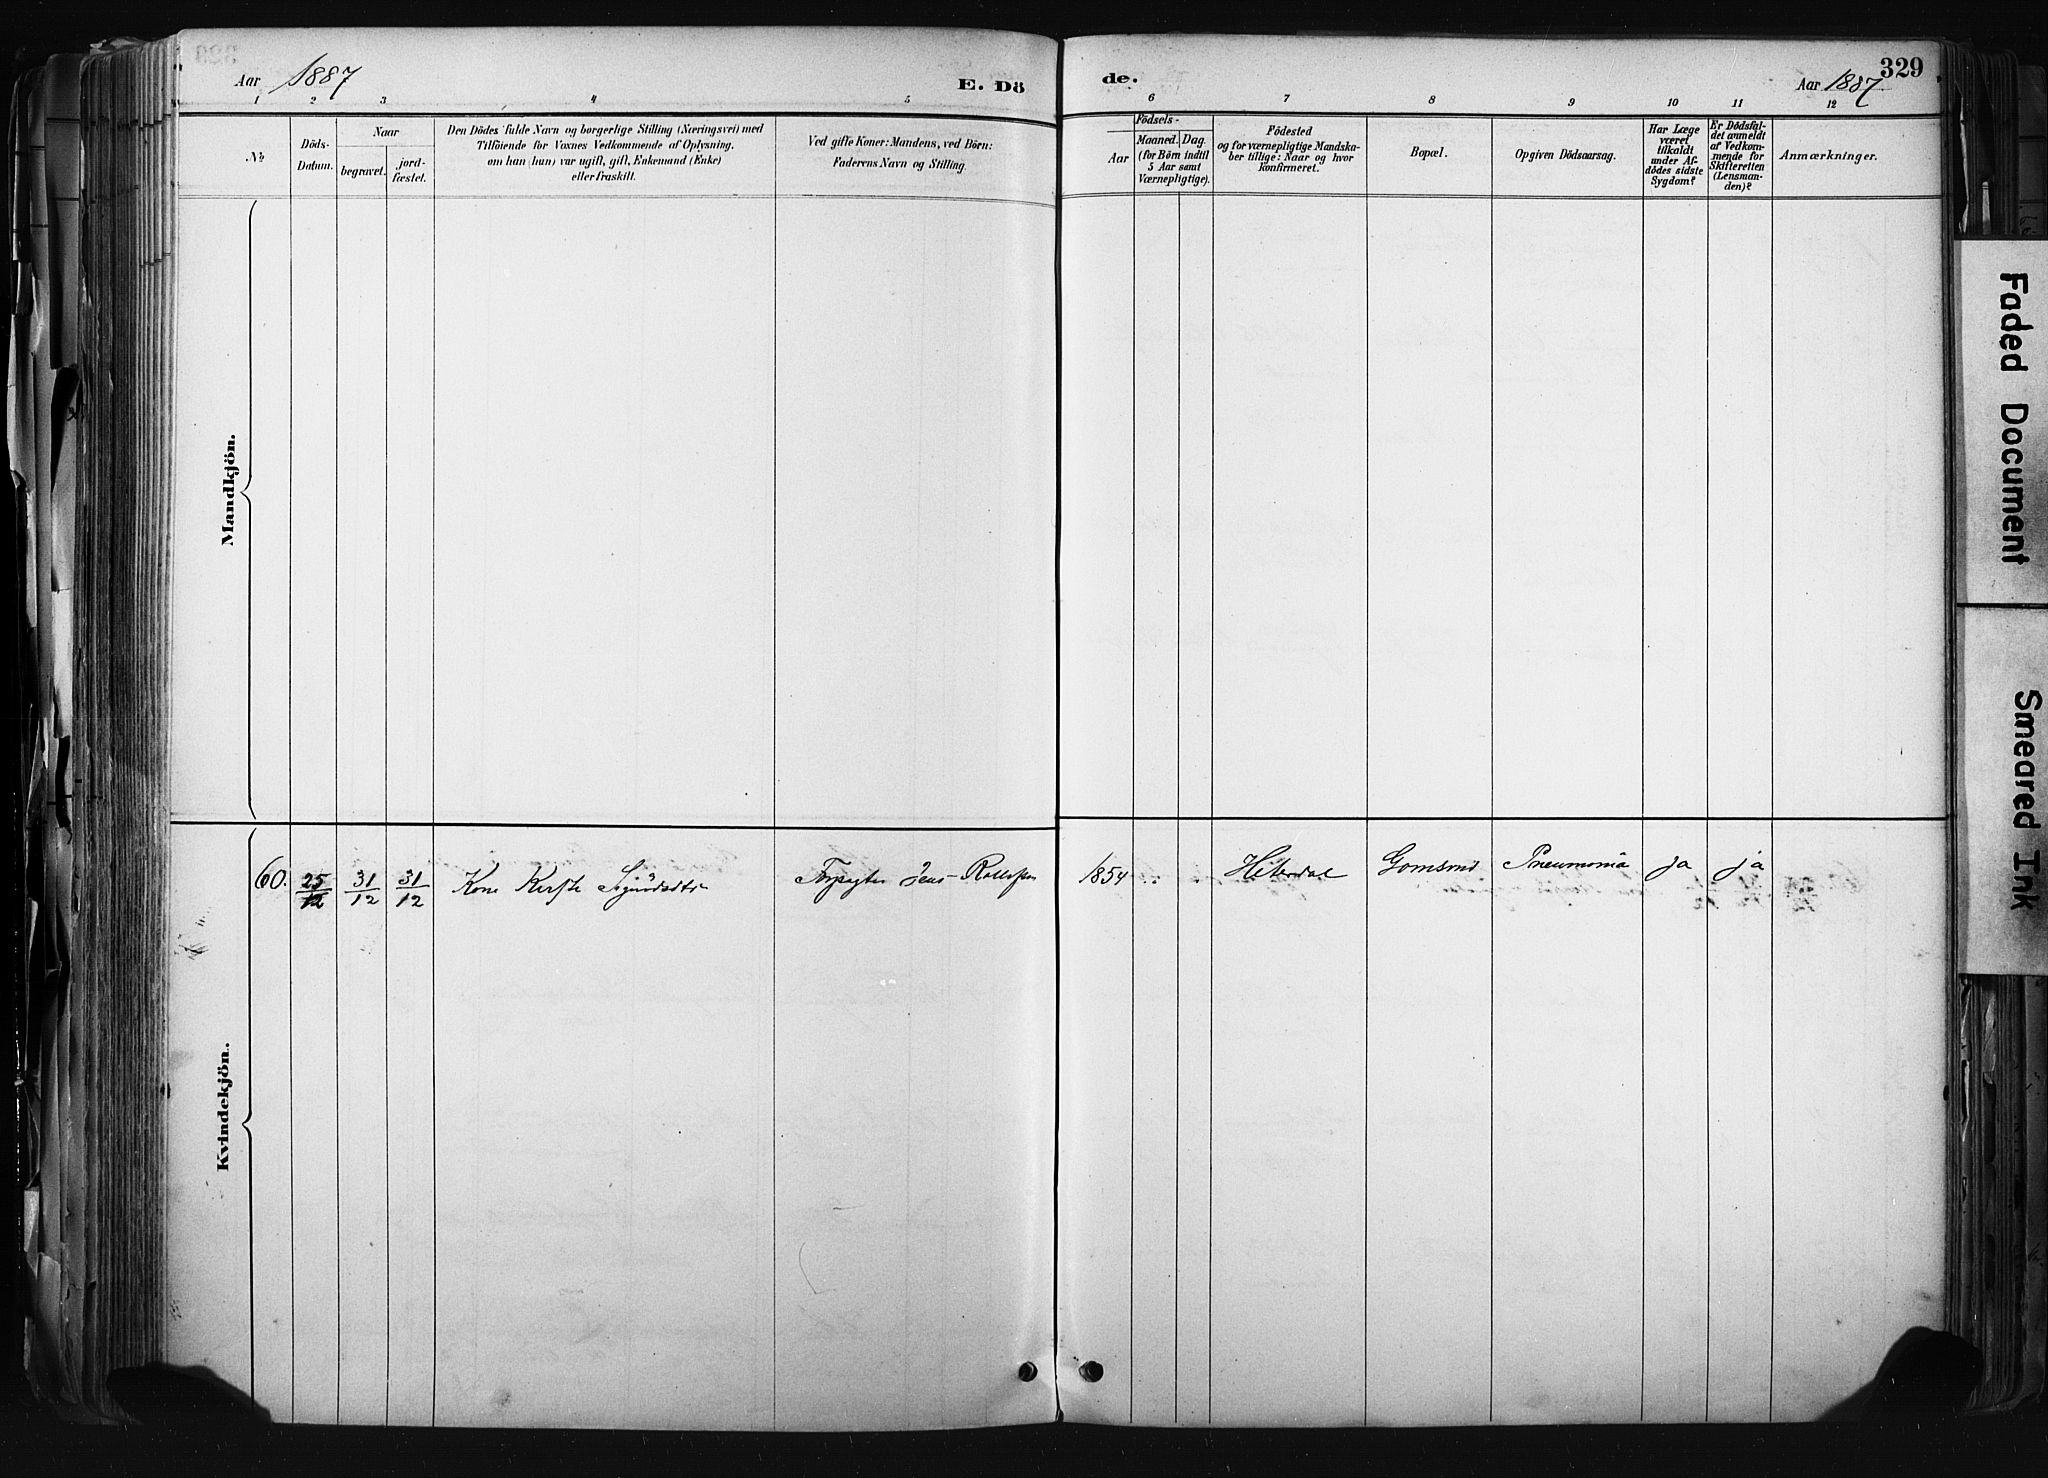 Aar 1887 E. Dö
de. Aar 1887. 329
1 2 3 4 5 6 7 8 9 10 11 12
No
Döds-
Datum.
Naar
begravet.
jord-
fæstet.
Den Dödes fulde Navn og borgerlige Stilling (Næringsvei) med
Tilföiende for Voxnes Vedkommende af Oplysning,
om han (hun) var ugift, gift, Enkemand (Enke)
eller fraskilt.
Ved gifte Koner: Mandens, ved Börn:
Faderens Navn og Stilling.
Födsels-
Aar
Maaned. Dag.
(for Börn indtil
5 Aar samt
Værnepligtige).
Födested
og for værnepligtige Mandska-
ber tillige: Naar og hvor
konfirmeret.
Bopæl.
Opgiven Dödsaarsag.
Har Læge
været
tilkaldt
under Af-
dödes sidste
Sygdom?
Er Dödsfal-
det anmeldt
af Vedkom-
mende for
Skifteretten
(Lensman-
den)?
Anmærkninger.
Mandkjön.
Kvindekjön.
60. 25/12 31/12 31/12 Kone Jens 1854 Hiterdal Pneumonia ja ja
Faded Document
Smeared Ink